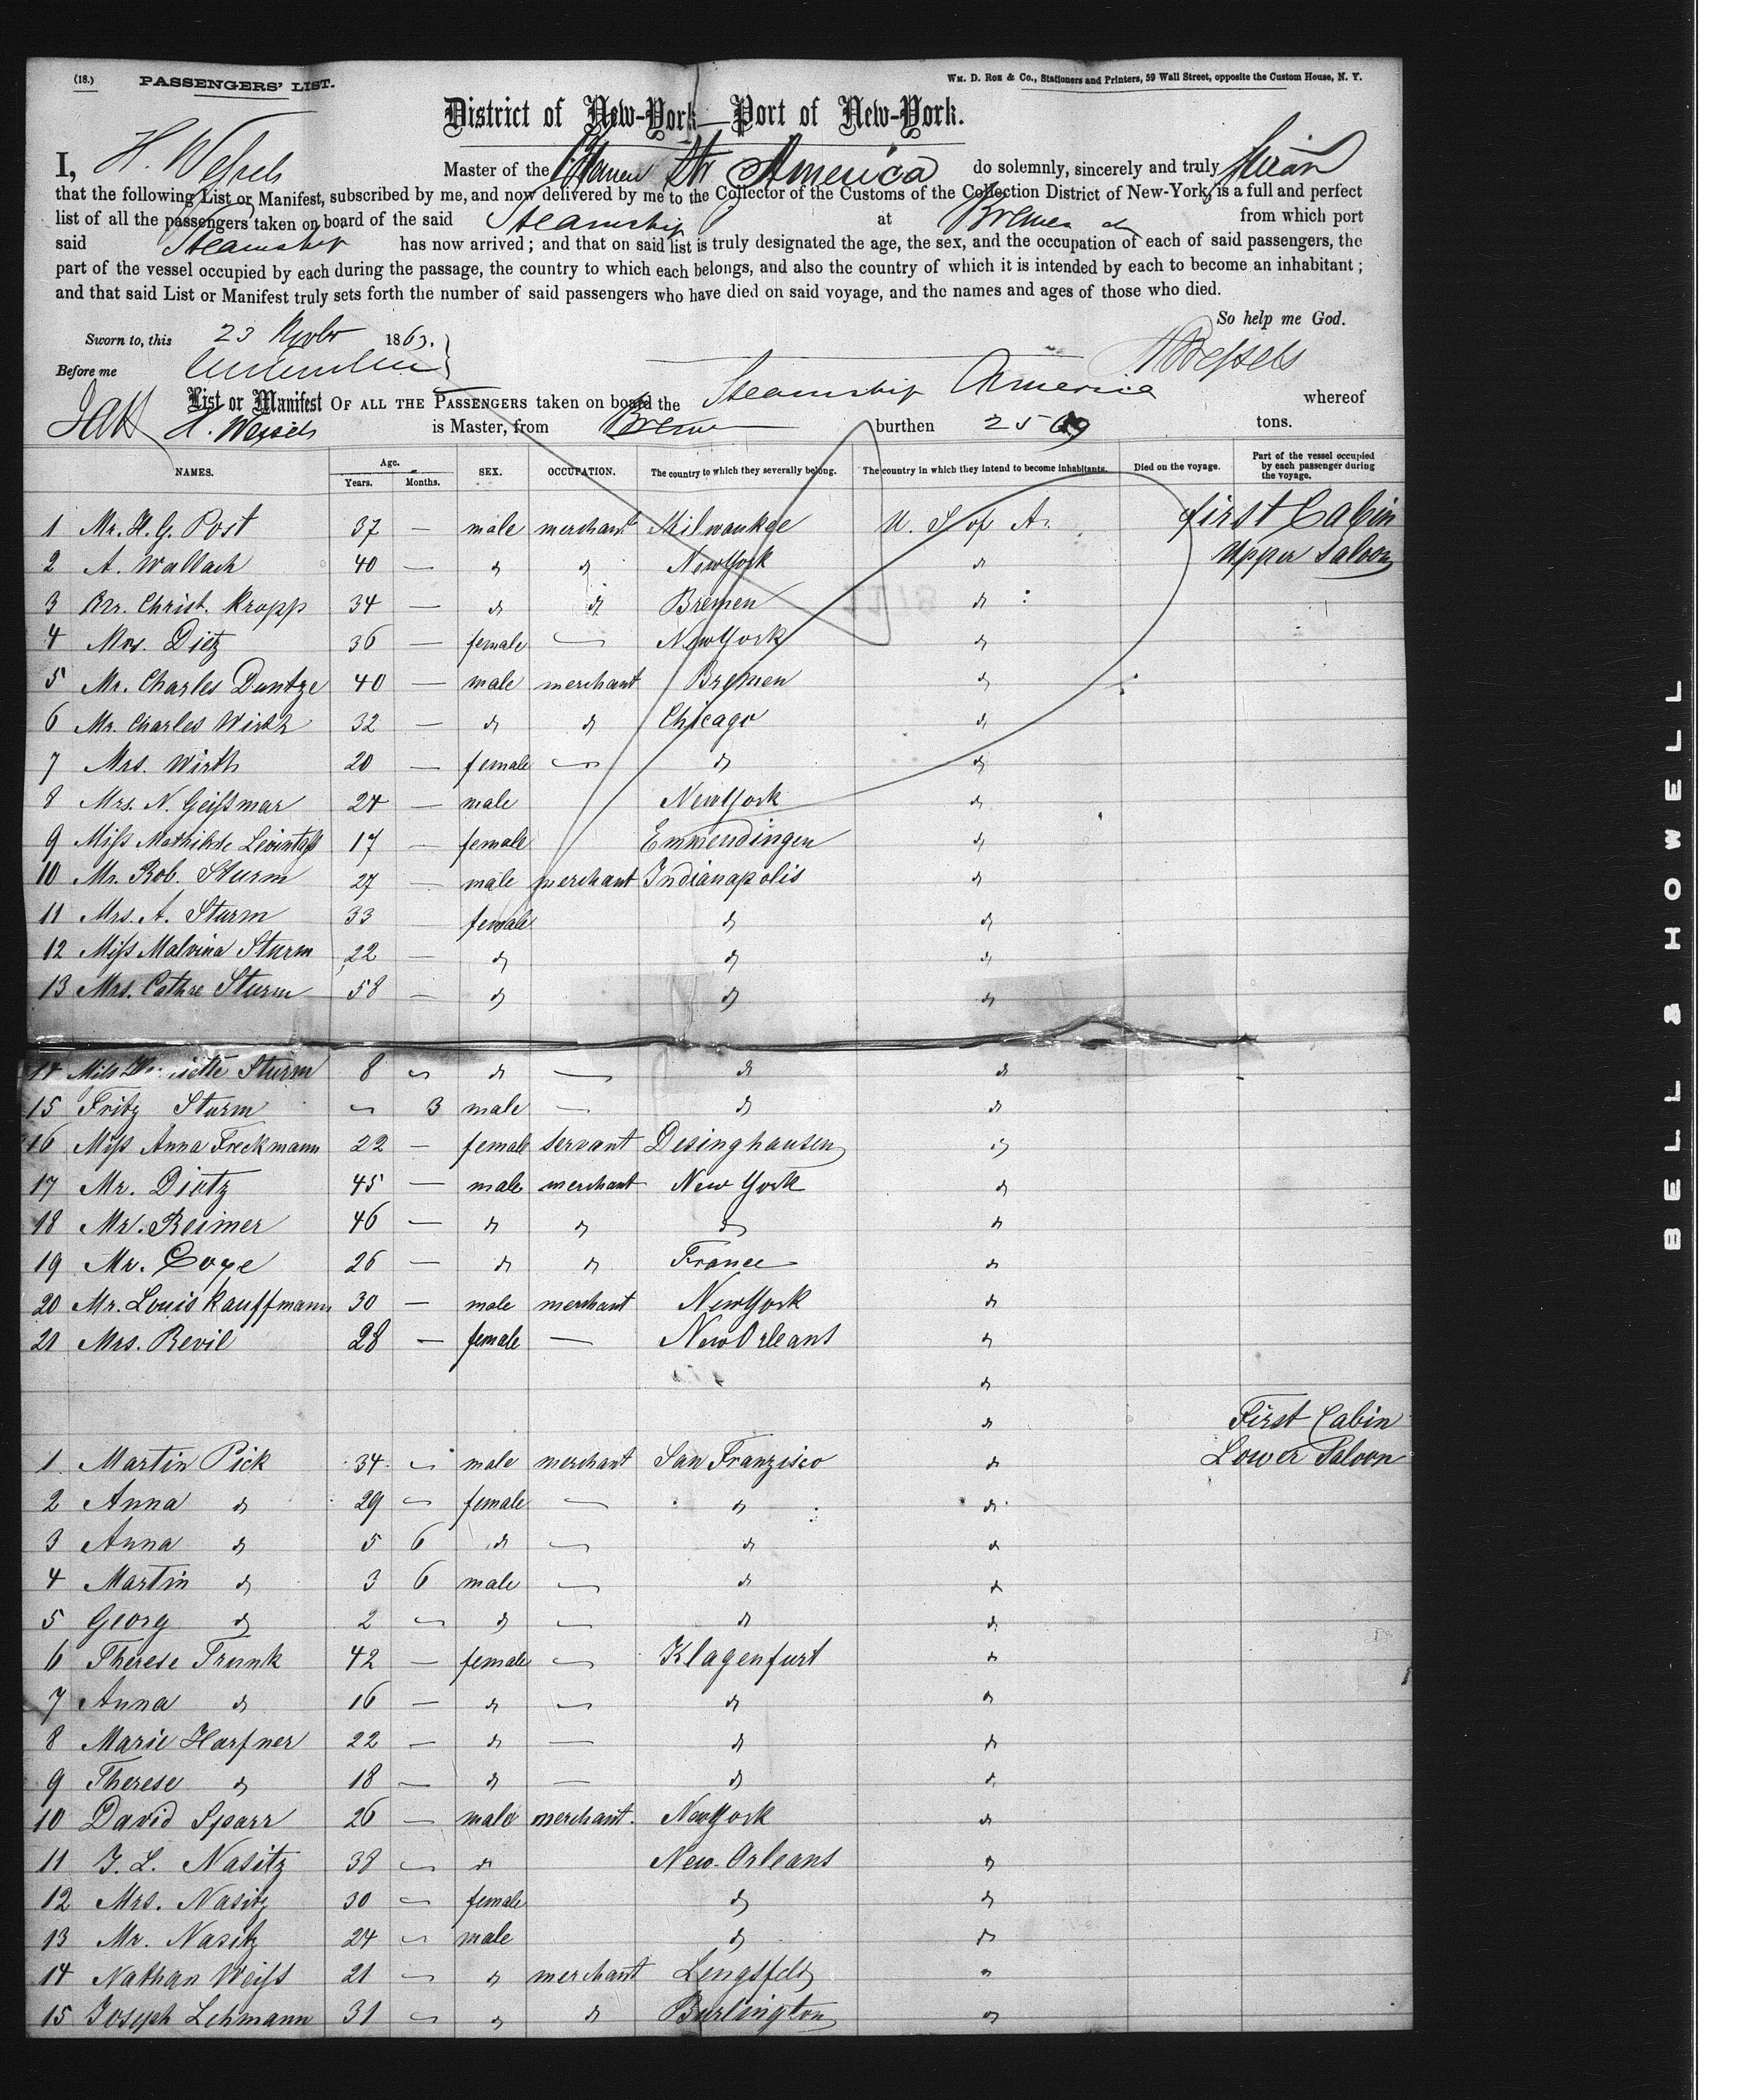 (18.) PASSENGERS' LIST. Wm. D. Roe & Co., Stationers and Printers, 59 Wall Street, opposite the Custom House, N. Y.
District of New-York—Port of New-York.
I, H. Wessels Master of the Str America do solemnly, sincerely and truly swear
that the following List or Manifest, subscribed by me, and now delivered by me to the Collector of the Customs of the Collection District of New-York, is a full and perfect
list of all the passengers taken on board of the said Steamship at Bremen from which port
said Steamship has now arrived; and that on said list is truly designated the age, the sex, and the occupation of each of said passengers, the
part of the vessel occupied by each during the passage, the country to which each belongs, and also the country of which it is intended by each to become an inhabitant;
and that said List or Manifest truly sets forth the number of said passengers who have died on said voyage, and the names and ages of those who died.
So help me God.
Sworn to, this 23 1863.
Before me
HWessels
List or Manifest OF ALL THE PASSENGERS taken on board the Steamship America whereof
H. Wessels is Master, from Bremen burthen 25 tons.
NAMES. Age. Years. Months. SEX. OCCUPATION. The country to which they severally belong. The country in which they intend to become inhabitants. Died on the voyage. Part of the vessel occupied by each passenger during the voyage.
1 Mr. H. G. Post 37 — male merchant Milwaukee U. S of A. first Cabin
2 A. Wallach 40 — do do New York do Upper Saloon
3 Mr. Christ. Kropp 34 — do do Bremen do
4 Mrs. Dietz 36 — female — New York do
5 Mr. Charles Duntze 40 — male merchant Bremen do
6 Mr. Charles Wirth 32 — do do Chicago do
7 Mrs. Wirth 20 — female — do do
8 Mrs. N. Geißmar 24 — male New York do
9 Miß Mathilde 17 — female Emmendingen do
10 Mr. Rob. Sturm 27 — male merchant Indianapolis do
11 Mrs. A. Sturm 33 female do do
12 Miß Malvina Sturm 22 — do do do
13 Mrs. Cathre Sturm 58 — do do do
14 Miss Sturm 8 — do — do do
15 Fritz Sturm — 3 male — do do
16 Miß Anna Freckmann 22 — female servant Desinghausen do
17 Mr. Dietz 45 — male merchant New York do
18 Mr. Reimer 46 — do do do do
19 Mr. Coye 26 — do do France do
20 Mr. Louis Kauffmann 30 — male merchant New York do
21 Mrs. Revil 28 — female — New Orleans do
do
do First Cabin
1 Martin Pick 34 — male merchant San Franzisco do Lower Saloon
2 Anna do 29 — female — do do
3 Anna do 5 6 do — do do
4 Martin do 3 6 male — do do
5 Georg do 2 — do — do do
6 Therese Trunk 42 — female — Klagenfurt do
7 Anna do 16 — do — do do
8 Marie Harfner 22 — do — do do
9 Therese do 18 — do — do do
10 David Sparr 26 — male merchant. New York do
11 J. L. Nasitz 38 — do New-Orleans do
12 Mrs. Nasitz 30 — female do do
13 Mr. Nasitz 24 — male do do
14 Nathan Weißt 21 — do merchant Lengsfeld do
15 Joseph Lehmann 31 — do do Burlington do
BELL & HOWELL